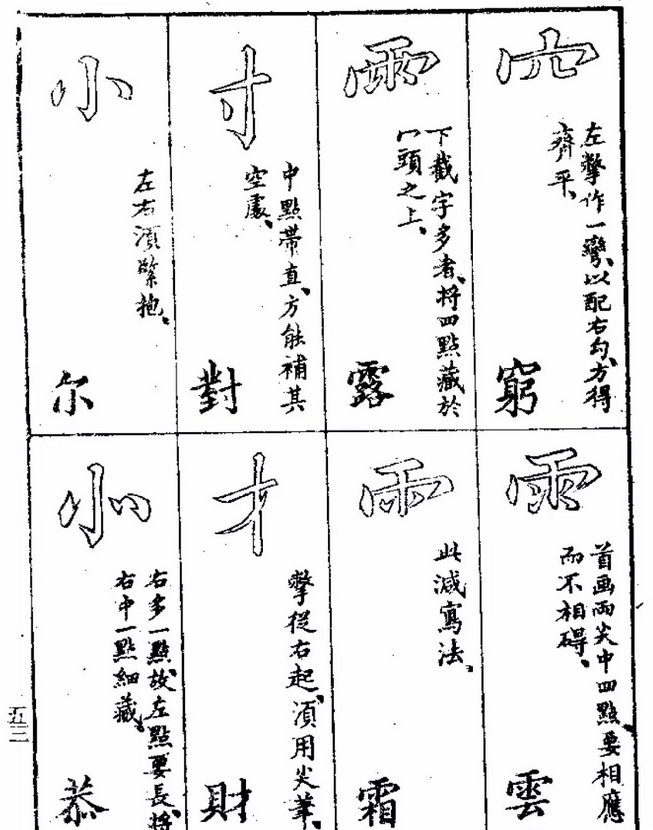 穴
左撇作一彎、以配右勾、方得
齊平、
窮
雨
下截字多者、將四點藏於
冖頭之上、
露
寸
中點帶直、方能補其
空處、
對
小
左右須緊抱、
尔
雨
首画兩尖中四點要相應
而不相碍、
雲
雨
此減寫法、
霜
才
撇從右起、須用尖筆、
財
㣺
右多一點、故左點要長、將
右中一點細藏、
恭
五三